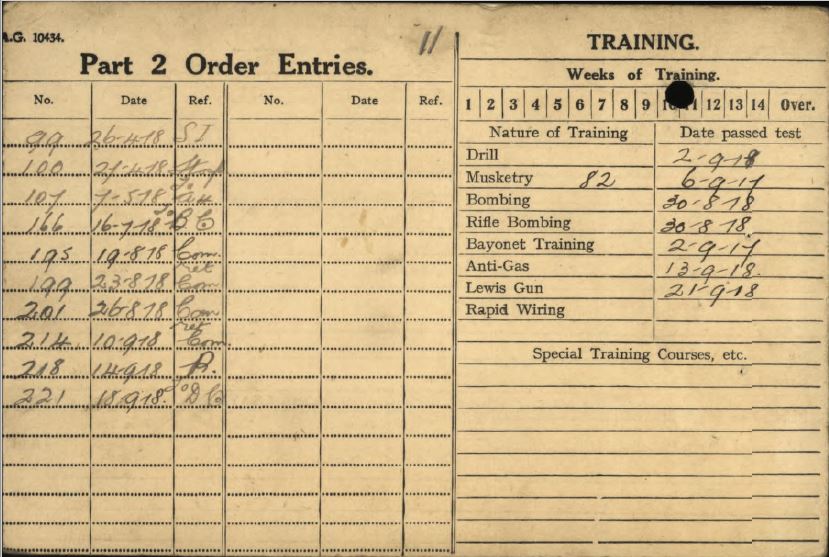 A.G. 10434.
11
Part 2 Order Entries.
No. Date Ref. No. Date Ref.
99 26-4-18 S I
100 27-4-18
107 7-5-18
166 16-7-18
195 19-8-18 Com.
ret
199 23-8-18 Com
201 26-8-18 Com
ret
214 10-9-18 Com.
218 14-9-18 R.
221 18-9-18.
TRAINING.
Weeks of Training.
1 2 3 4 5 6 7 8 9 10 11 12 13 14 Over.
Nature of Training Date passed test
Drill 2-9-18
Musketry 82 6-9-17
Bombing 30-8-18
Rifle Bombing 30-8-18.
Bayonet Training 2-9-17
Anti-Gas 13-9-18.
Lewis Gun 21-9-18
Rapid Wiring
Special Training Courses, etc.